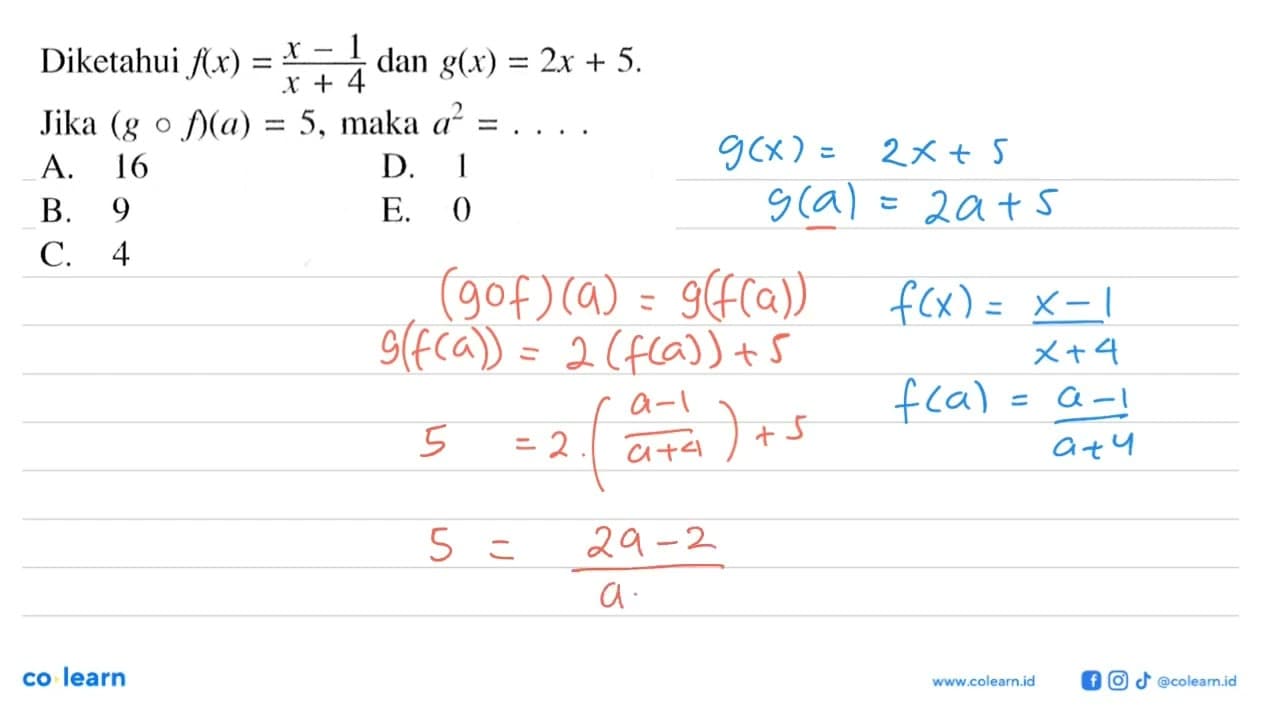 Diketahui f(x) = \frac{x - 1}{x + 4} dan g(x) = 2x + 5.
Jika (g ∘ f)(a) = 5, maka a² = . . . .
A. 16 D. 1
B. 9 E. 0
C. 4
g(x) = 2x + 5
g(a) = 2a + 5
(gof)(a) = g(f(a))
g(f(a)) = 2(f(a)) + 5
5 = 2.(\frac{a-1}{a+4}) + 5
5 = \frac{2a-2}{a}
f(x) = \frac{x-1}{x+4}
f(a) = \frac{a-1}{a+4}
co learn
www.colearn.id @colearn.id